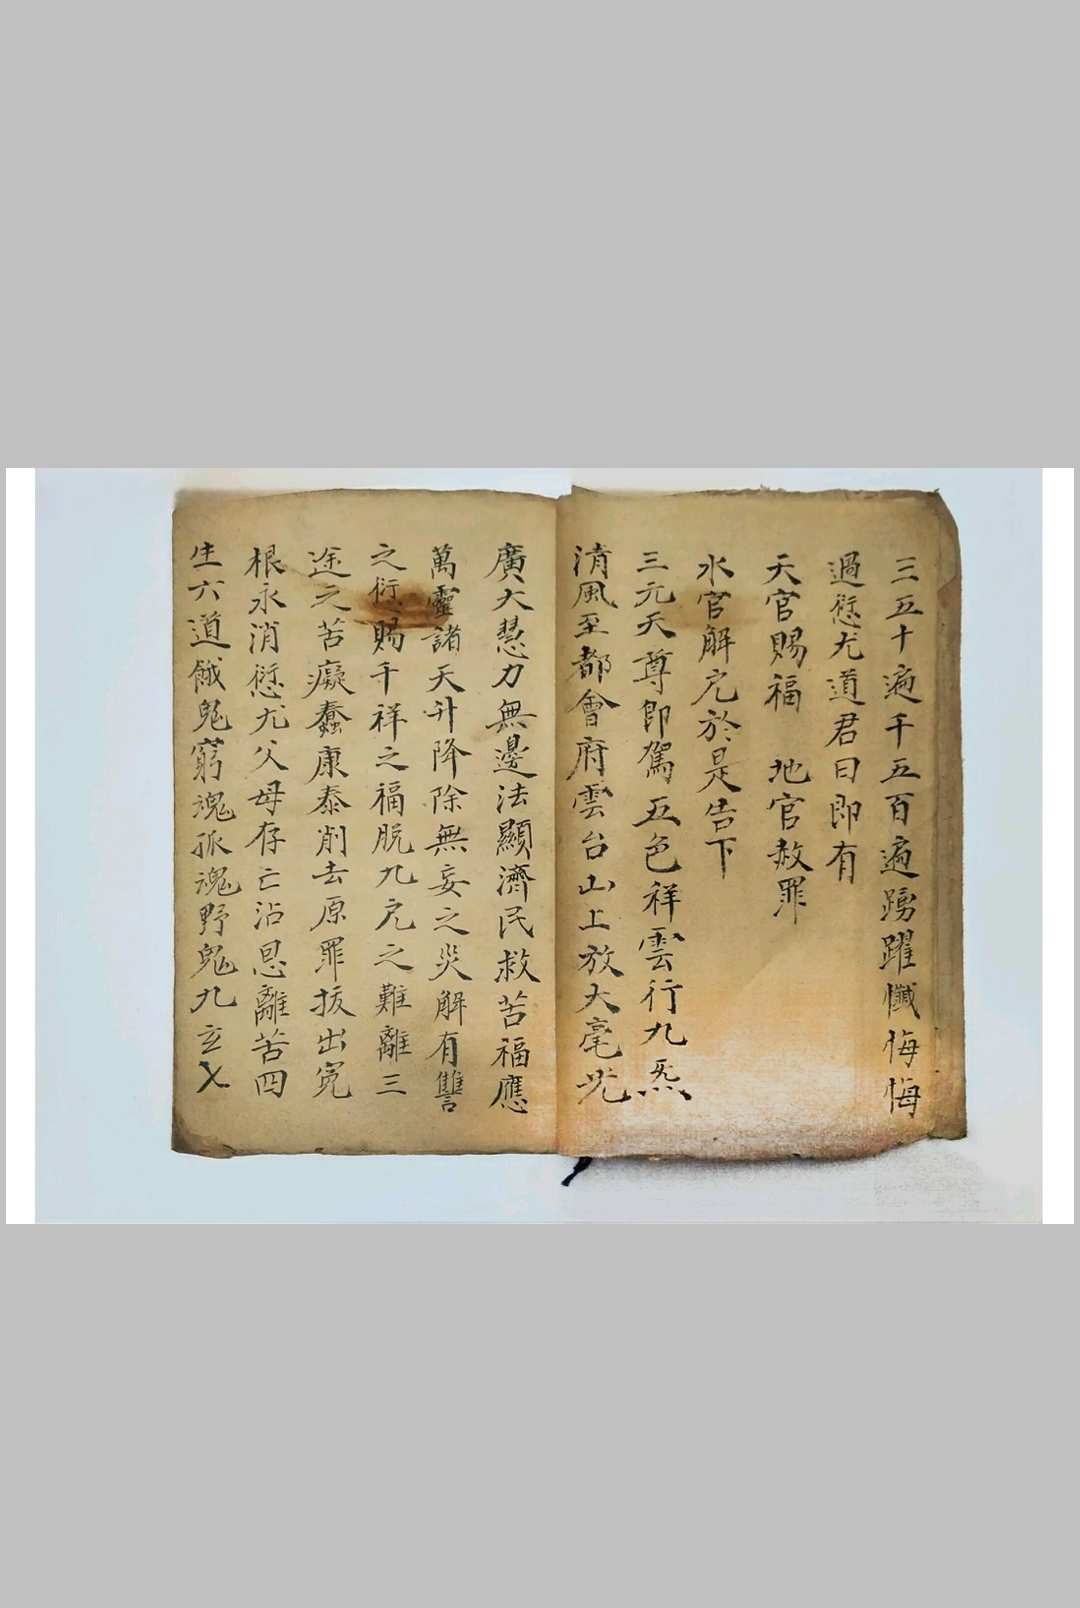 三五十遍千五百遍踴躍懺悔悔
過愆尤道君曰即有
天官賜福　地官赦罪
水官解厄於是告下
三元天尊即駕五色祥雲行九炁
清風至都會府雲台山上放大毫光
廣大慧力無邊法顯濟民救苦福應
萬靈諸天升降除無妄之災解有讐
之衍賜千祥之福脫九厄之難離三
途之苦癡蠢康泰削去原罪拔出冤
根永消愆尤父母存亡沾恩離苦四
生六道餓鬼窮魂孤魂野鬼九玄乂